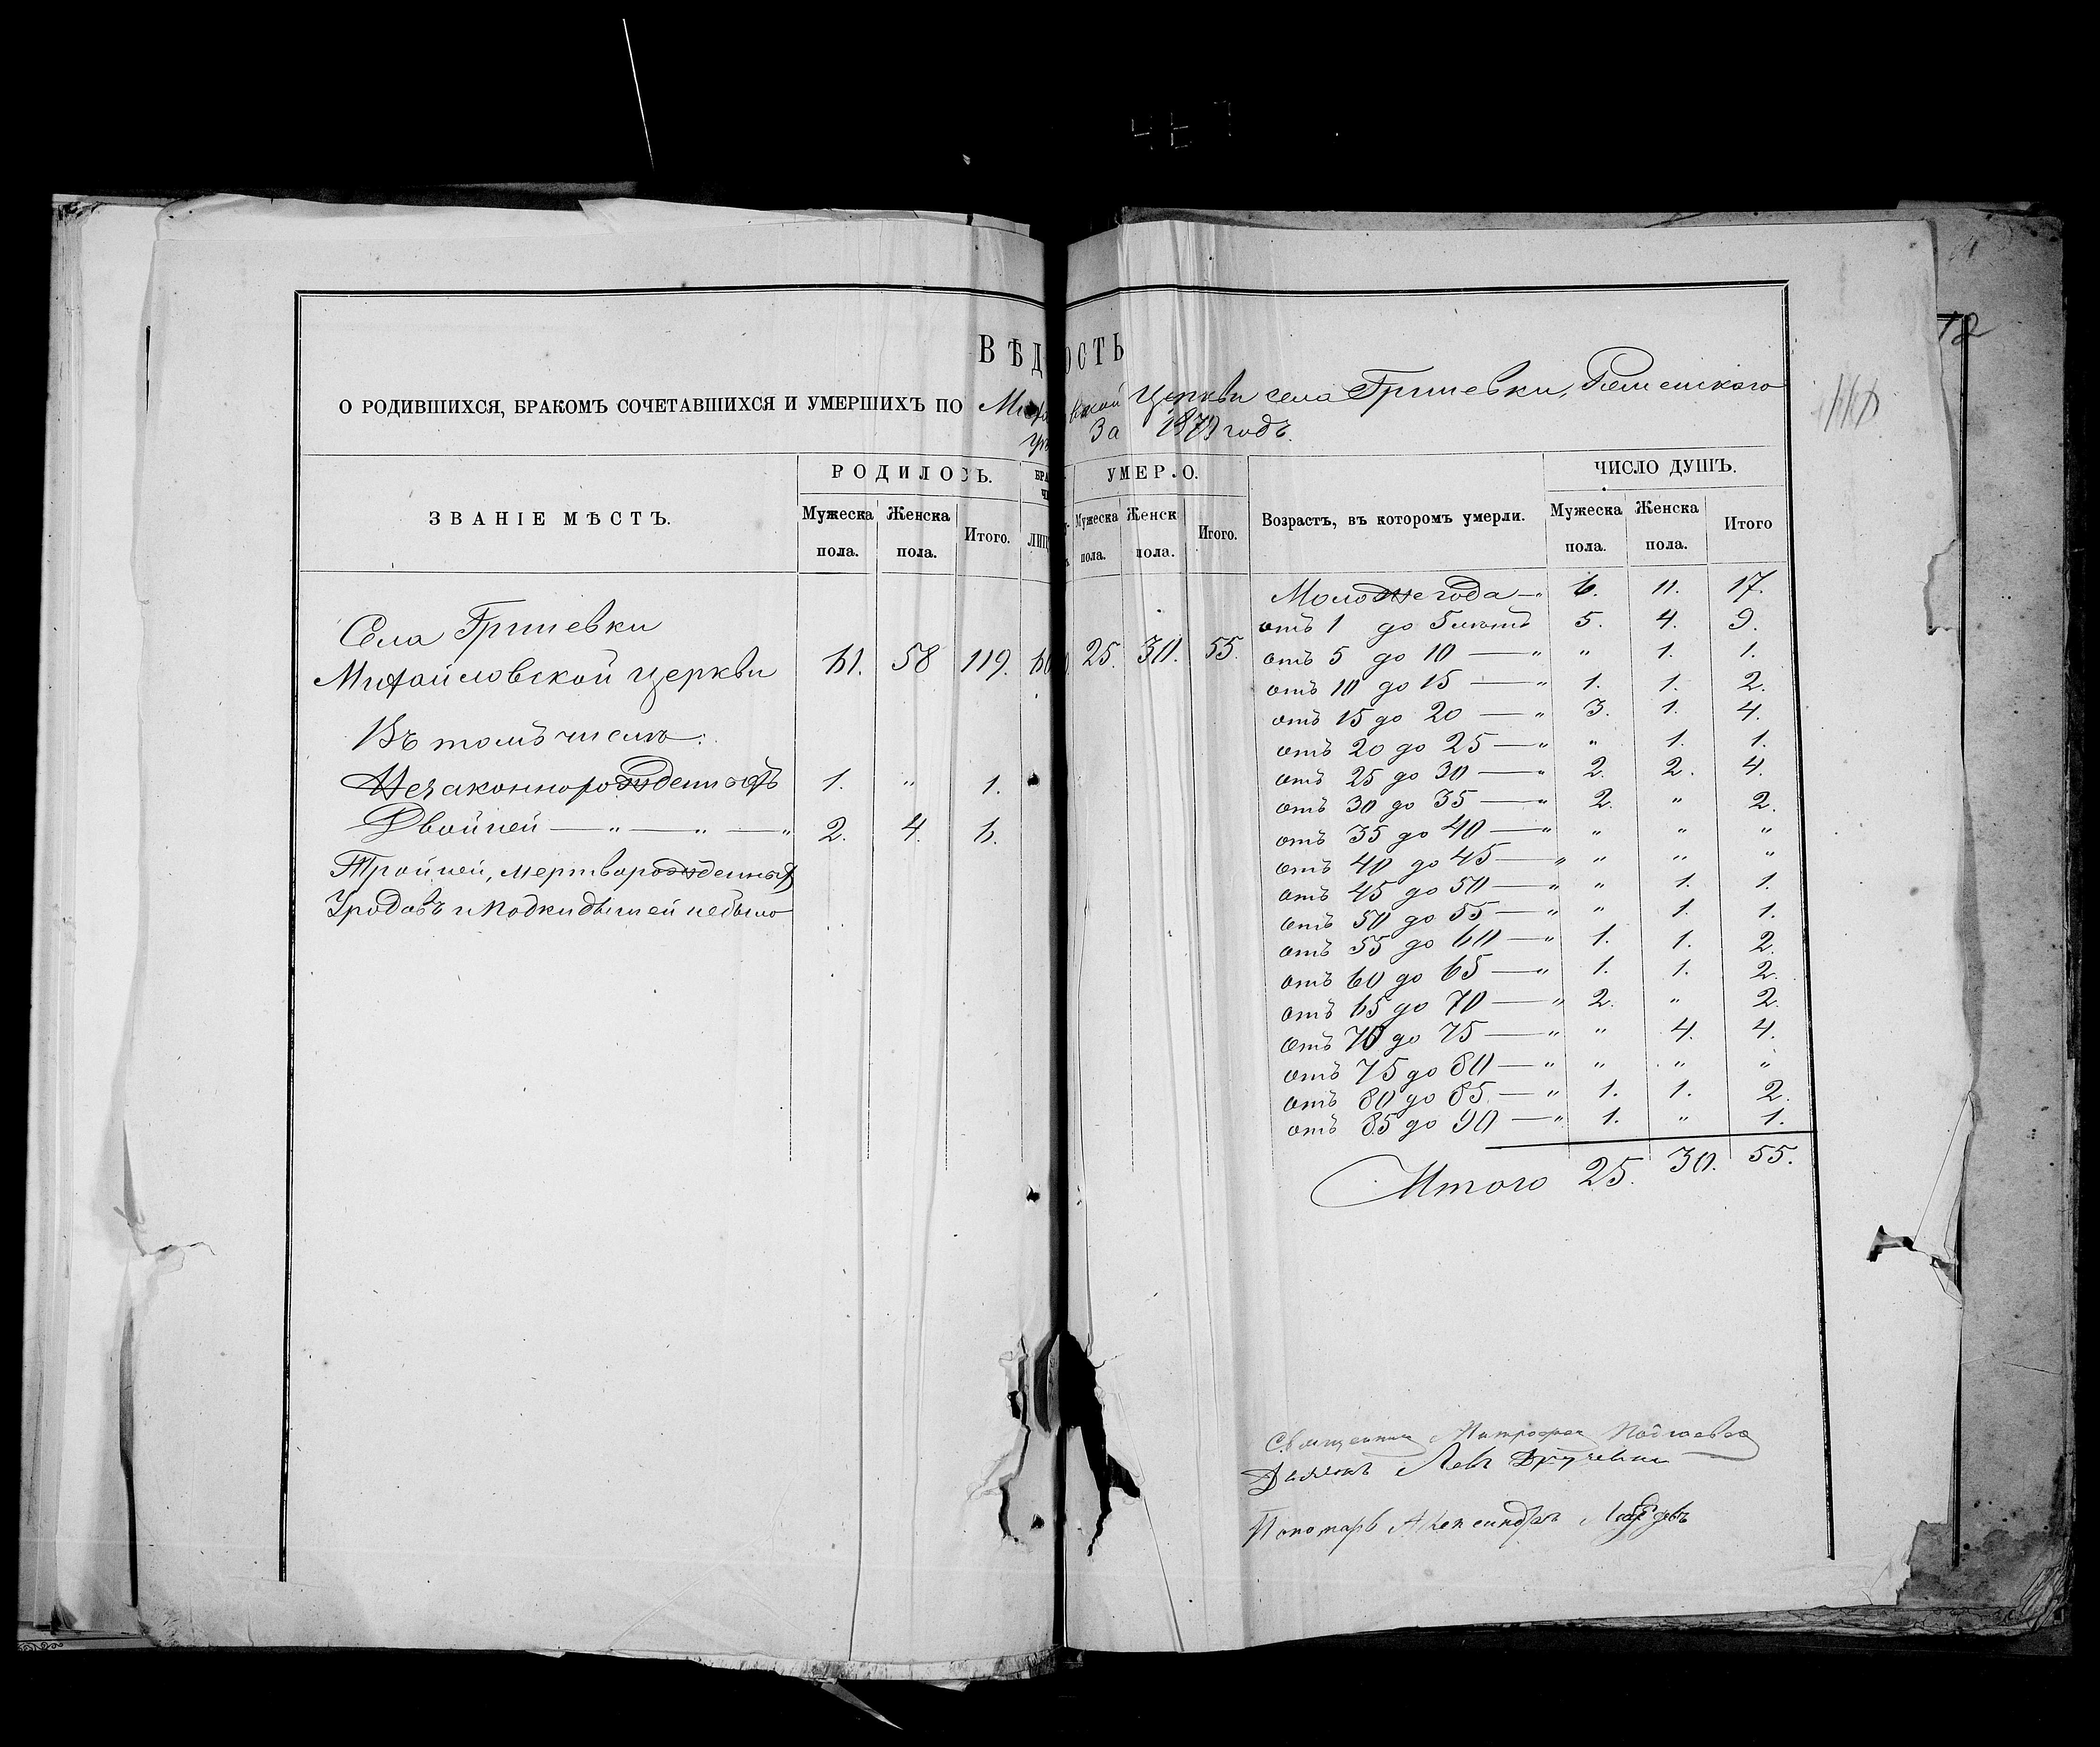 ВѢД ОСТЬ
О РОДИВШИХСЯ, БРАКОМЪ СОЧЕТАВШИХСЯ И УМЕРШИХЪ ПО Церкви села Гришевки,
За годъ.
ЗВАНІЕ МѢСТЪ. РОДИЛОСЬ. УМЕРЛО. Возрастъ, въ которомъ умерли. ЧИСЛО ДУШЪ.
Мужеска пола. Женска пола. Итого. Мужеска пола. Женск пола. Итого. Мужеска пола. Женска пола. Итого
Села Гришевки
Михайловской церкви 61. 58 119. 25. 30. 55.
Въ томъ числѣ:
Незаконнорожденныхъ 1. " 1.
Двойней — " — " — " 2. 4. 6.
Тройней, мертворожденныхъ
Уродовъ и Подкидышей небыло
Моложе года — " 6. 11. 17.
отъ 1 до 5 лѣтъ 5. 4. 9.
отъ 5 до 10 — " " 1. 1.
отъ 10 до 15 — " 1. 1. 2.
отъ 15 до 20 — " 3. 1. 4.
отъ 20 до 25 — " " 1. 1.
отъ 25 до 30 — " 2. 2. 4.
отъ 30 до 35 — " 2. " 2.
отъ 35 до 40 — " " " "
отъ 40 до 45 — " " " "
отъ 45 до 50 — " " 1. 1.
отъ 50 до 55 — " " 1. 1.
отъ 55 до 60 — " 1. 1. 2.
отъ 60 до 65 — " 1. 1. 2.
отъ 65 до 70 — " 2. " 2.
отъ 70 до 75 — " " 4. 4.
отъ 75 до 80 — " " " "
отъ 80 до 85 — " 1. 1. 2.
отъ 85 до 90 — " 1. " 1.
Итого 25. 30. 55.
Священник Митрофан
Левъ
Пономарь Александръ